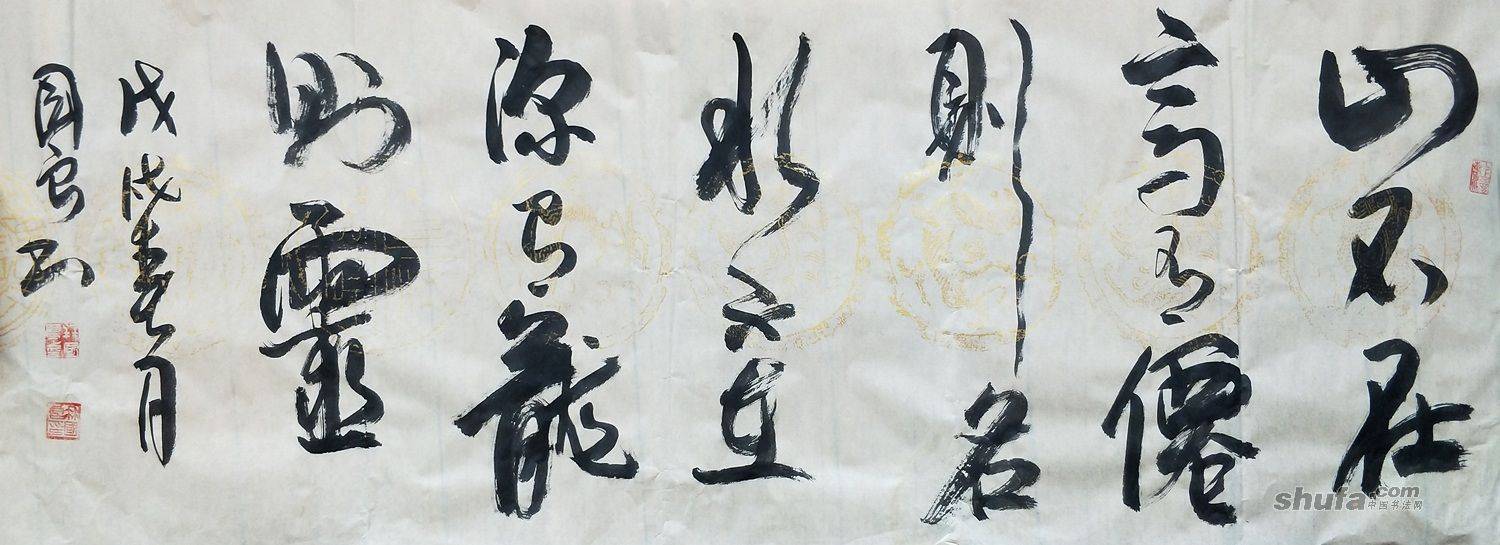 山不在
高有僊
則名
水不在
深有龍
則靈
戊戌春月
国书
shufa.com
中国书法网